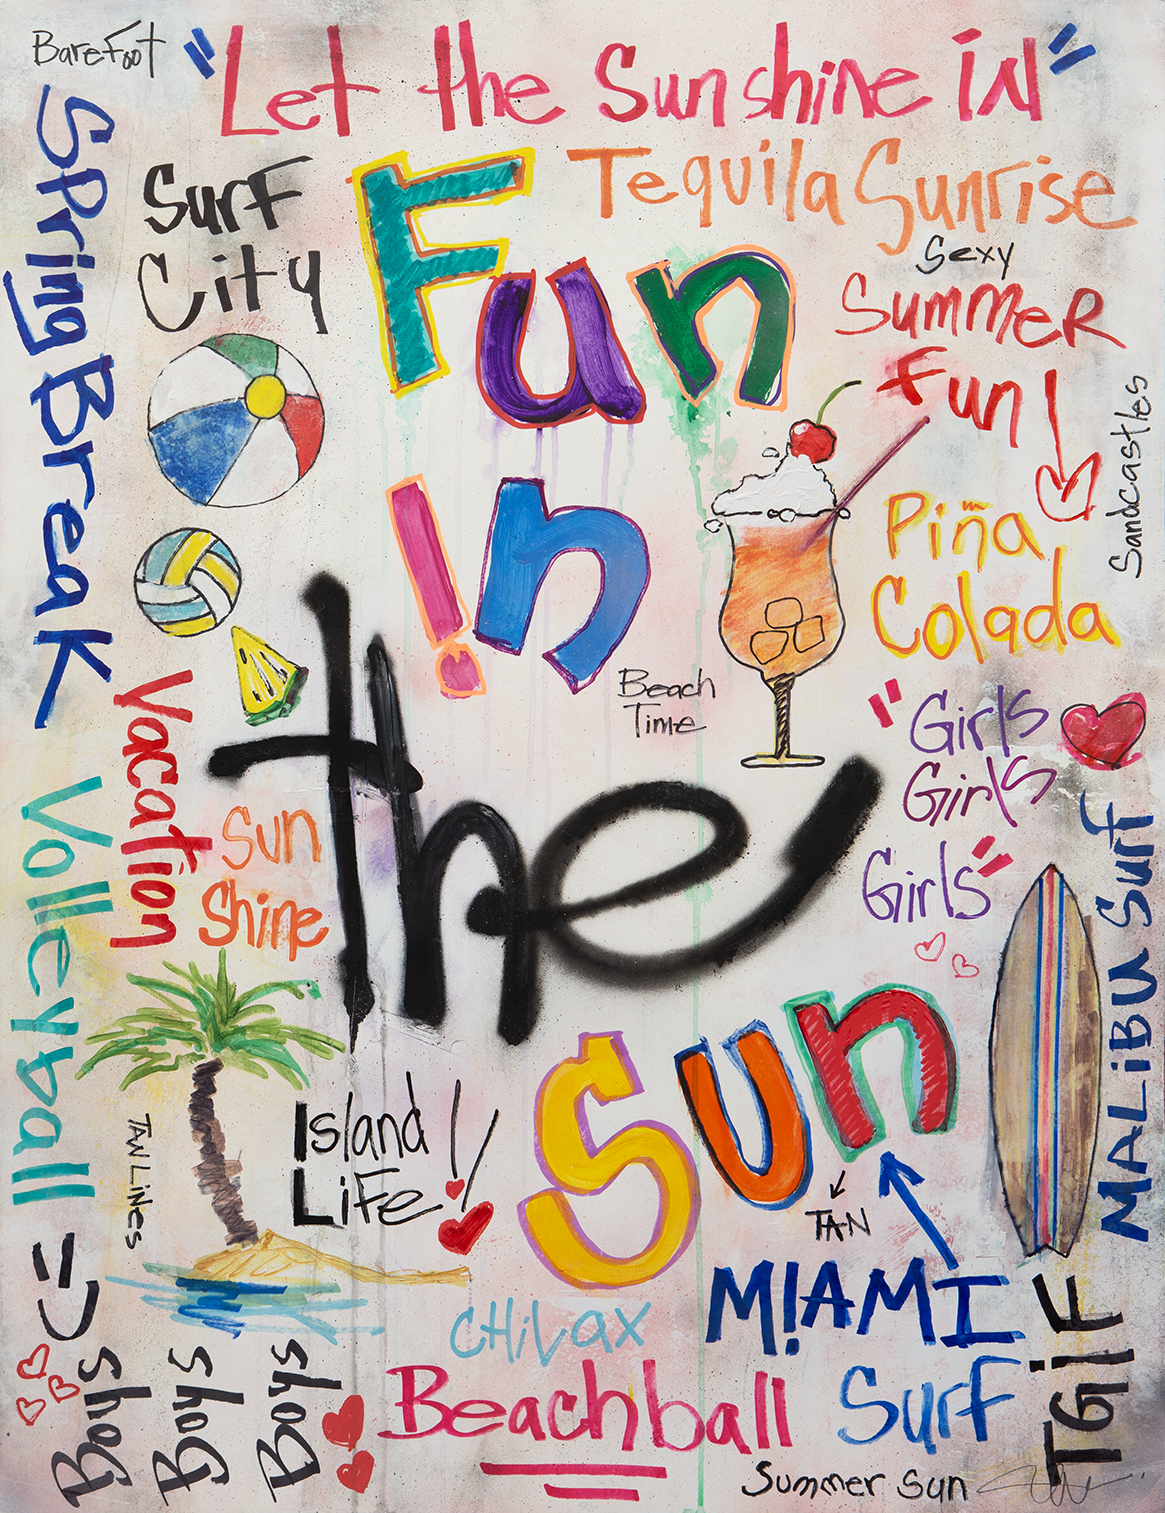 BareFoot
"Let the Sunshine iN"
Spring Break
Surf
City
Fun
Tequila Sunrise
Sexy
SummeR
Fun
Sandcastles
!n
Piña
Colada
Beach
Time
the
"Girls
Girls
Girls"
Vacation
Sun
Shine
Volleyball
MALiBU Surf
TAN LiNes
Island
LiFe!
Sun
TAN
M!AMI
CHiLax
Beachball
Surf
TGiF
Boys
Boys
Boys
Summer Sun